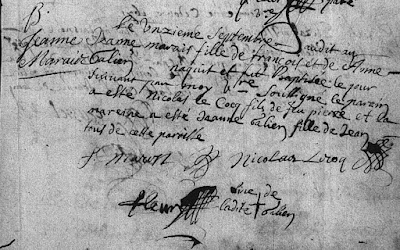 B.
Jeanne
Marais
Le onzieme septembre audit an
Jeanne marais fille de francois et de Anne
Galien naquit et fut baptisée le jour
suivant par moy soussigné le parain
a esté Nicolas le Cocq fils de feu pierre et la
mareine a esté Jeanne Galien fille de Jean
tous de cette paroisse
f. marais Nicolas Lecoq
fleury vic de
ladite Galien